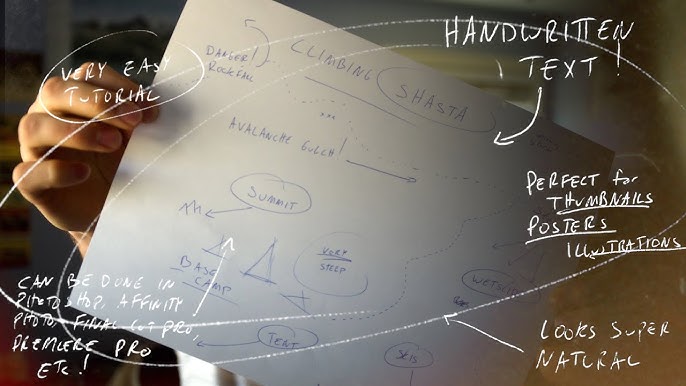 HANDWRITTEN
TEXT!
VERY EASY
TUTORIAL
DANGER!
ROCKFALL
CLIMBING SHASTA
AVALANCHE GULCH!
SUMMIT
VERY
STEEP
BASE
CAMP
TENT
SKIS
PERFECT for
THUMBNAILS
POSTERS
ILLUSTRATIONS
CAN BE DONE IN
PHOTOSHOP, AFFINITY
PHOTO, FINAL CUT PRO,
PREMIERE PRO
ETC!
LOOKS SUPER
NATURAL